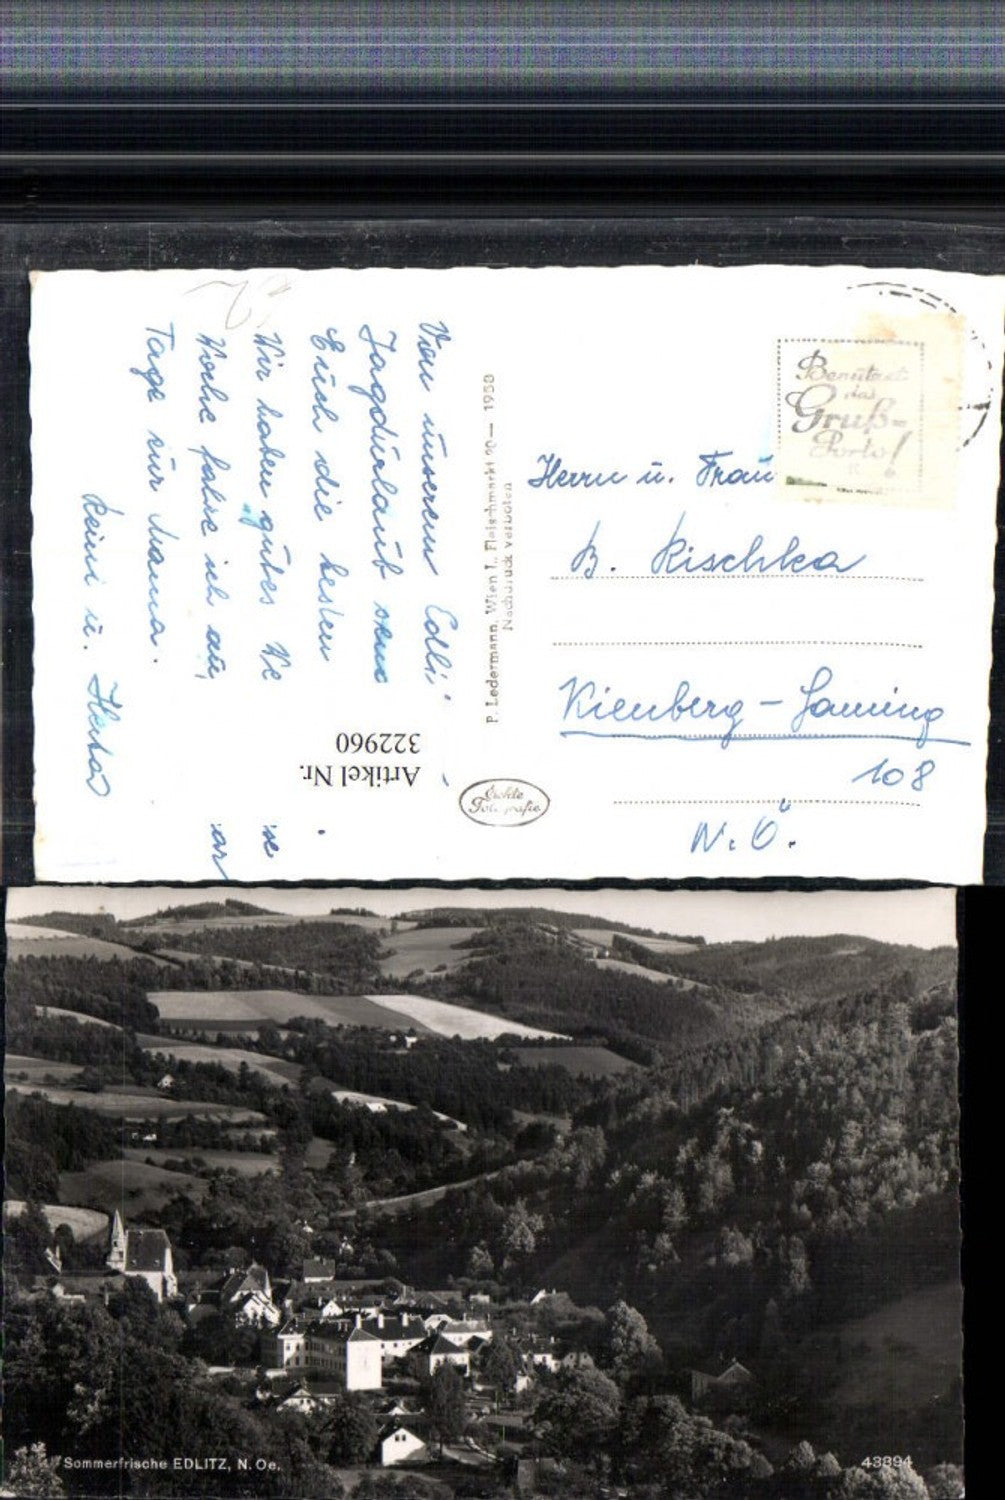 Von unserem Edli-
Jagdurlaub
Euch die besten
Wir haben gutes We
Woche fahre ich
Tage zur Mama.
Reini u. Herta
se
ar
Artikel Nr.
322960
P. Ledermann, Wien I., Fleischmarkt 20 — 1958
Nachdruck verboten
Echte
Fotografie
Benützet
das
Gruß-
Porto!
Herrn u. Frau
B. Rischka
Kienberg - Gaming
108
N. Ö.
Sommerfrische EDLITZ, N. Oe.
43394